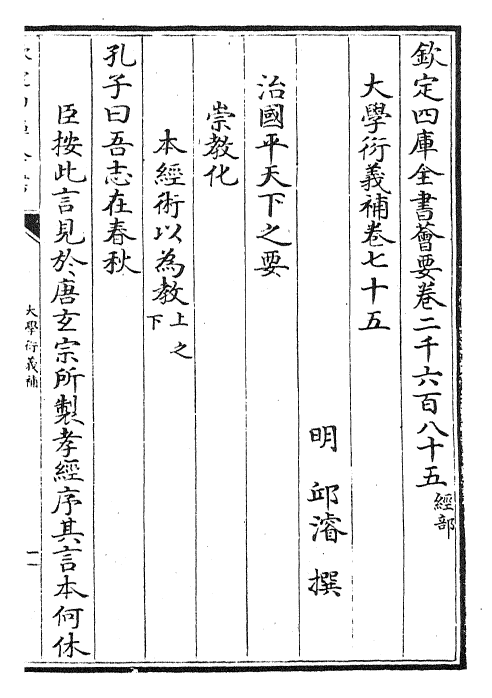 欽定四庫全書薈要卷二千六百八十五經部
大學衍義補卷七十五
明 邱濬 撰
治國平天下之要
崇教化
本經術以為教上之下
孔子曰吾志在春秋
臣按此言見於唐玄宗所製孝經序其言本何休
大學衍義補
一